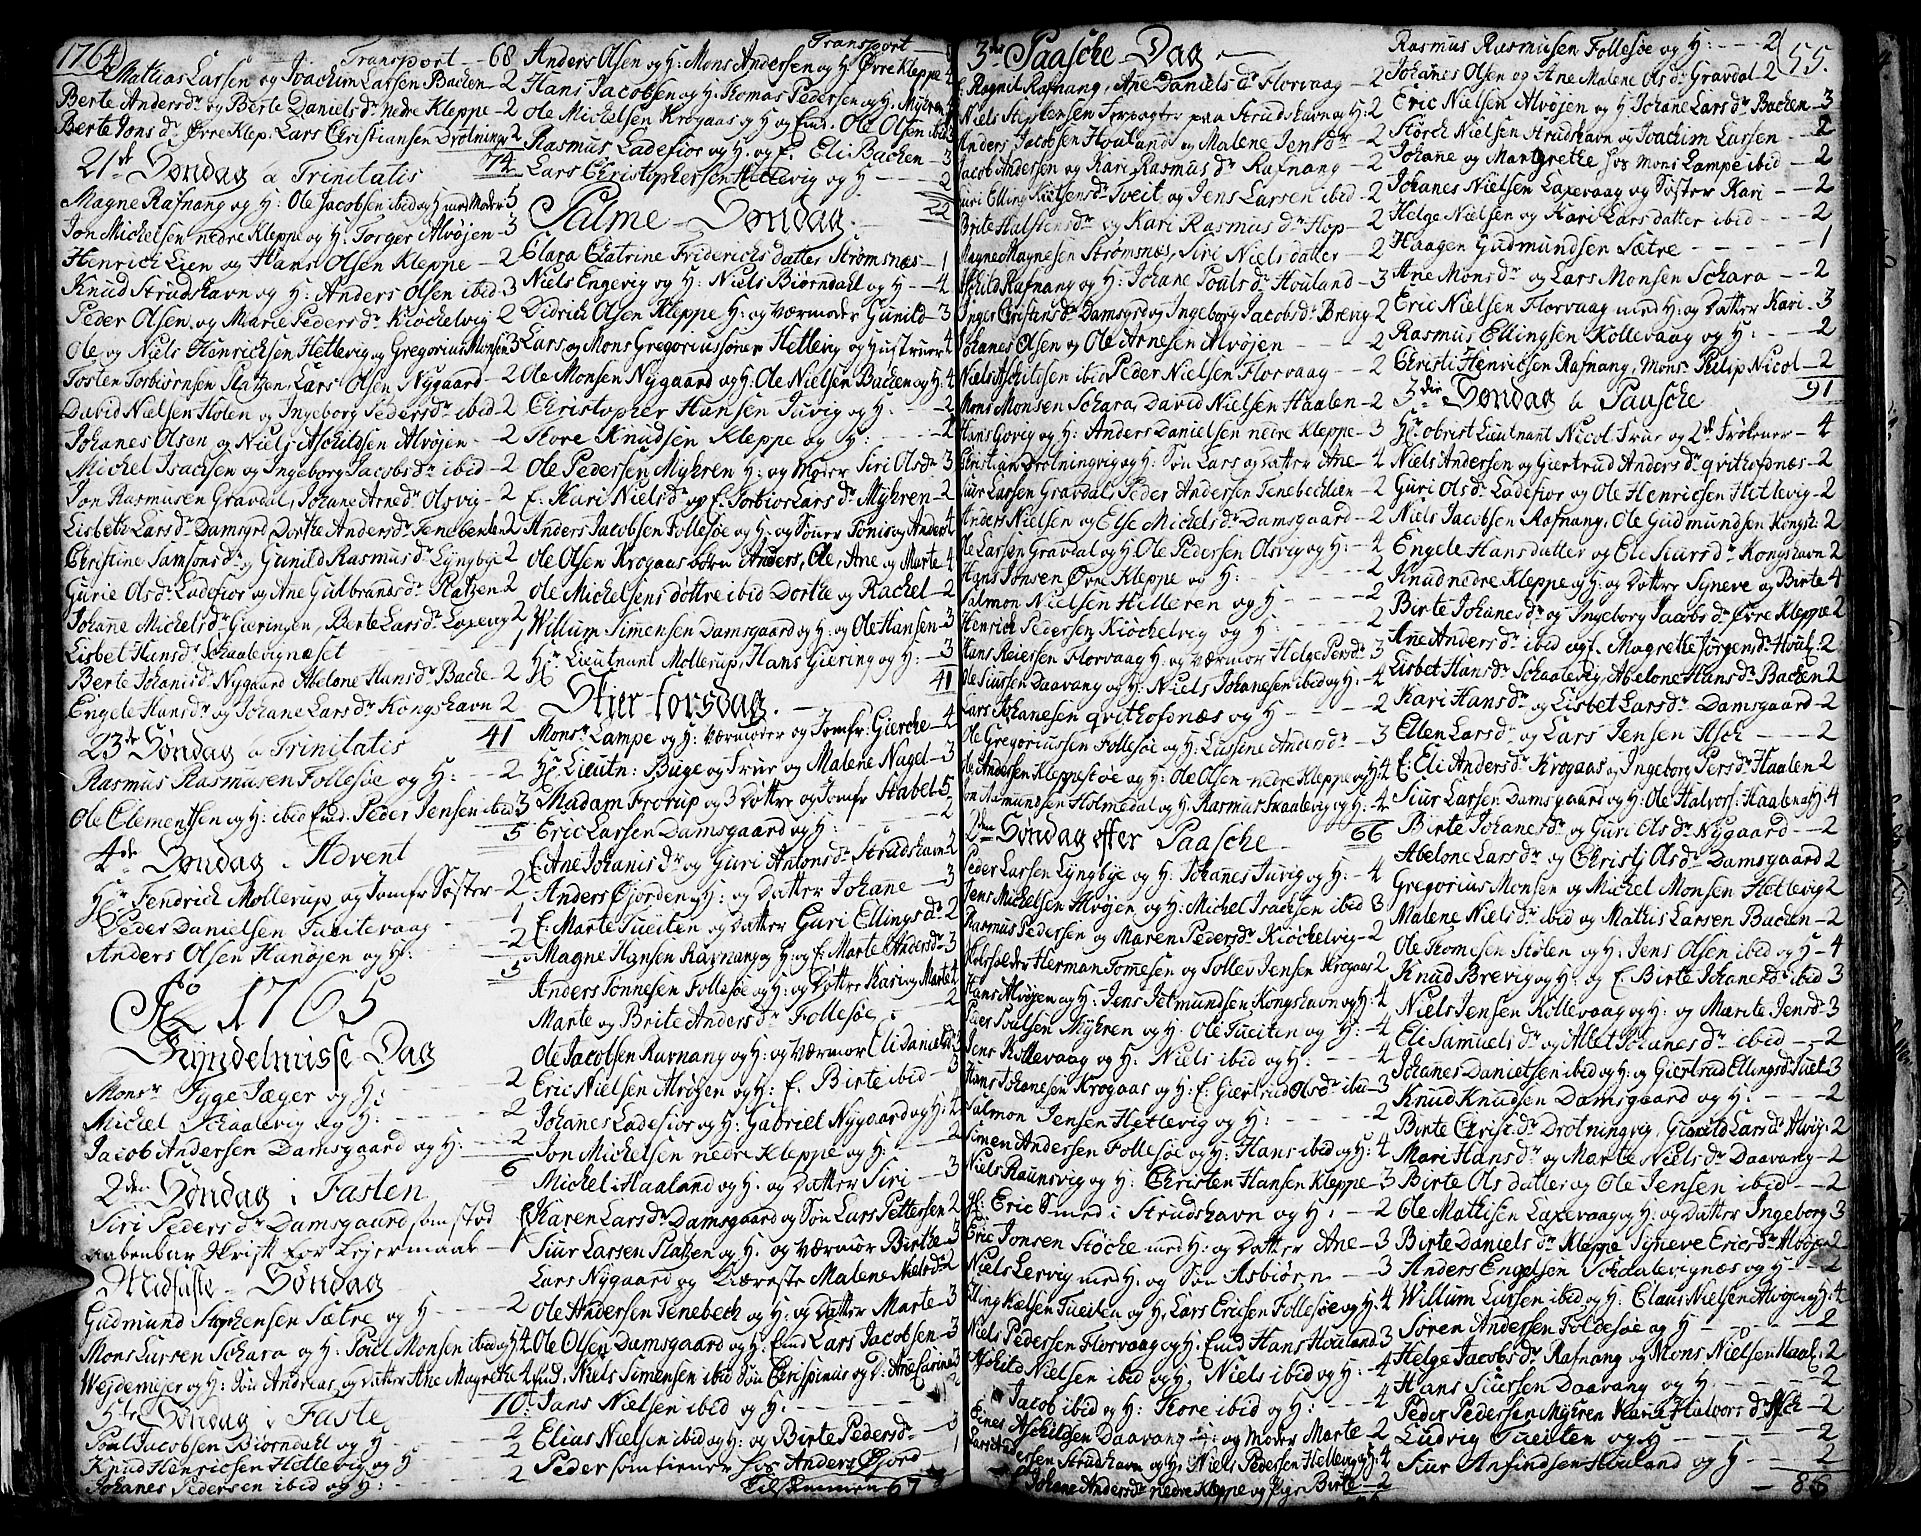 1764
Transport - 68
Mathias Larsen og Joachim Larsen Bachen - 2
Berte Andersdr og Berte Danielsdr nedre Kleppe - 2
Berte Jonsdr Øvre Klep. Lars Christiansen Drotningv 2
74
21de Søndag a Trinitatis
Magne Rafnang og H: Ole Jacobsen ibid og H med Moder 5
Jon Michelsen nedre Kleppe og H: Torger Alvøjen - 3
Henrich Lien og Hans Olsen Kleppe - 2
Knud Strudshavn og H: Anders Olsen ibid - 3
Peder Olsen og Marie Pedersdr Kiøckelvig - 2
Ole og Niels Henrichsen Hetlevig og Gregorius Monsen 3
Tosten Torbiørnsen Platzen, Lars Olsen Nygaard - 2
David Nielsen Holen og Ingeborg Pedersdr ibid - 2
Johanes Olsen og Niels Aschildsen Alvøjen - 2
Michel Isachsen og Ingeborg Jacobsdr ibid - 2
Jon Rasmusen Gravdal, Johane Arnedr Olsvig - 2
Lisbeth Larsdr Damsgrd, Dorthe Andersdr Tenebechen 2
Christine Samsonsdr og Gunild Rasmusdr Lyngbye 2
Gurie Olsdr Ladefior og Ane Gulbransdr Platzen 2
Johane Michelsdr Gieringen, Berte Larsdr Laxevog 2
Lisbet Hansdr Schaalevignæset - 1
Berte Johanisdr Nygaard Abelone Hansdr Bache - 2
Engele Hansdr og Johane Larsdr Kongshavn 2
41
23de Søndag a Trinitatis
Rasmus Rasmusen Follesøe og H: - 2
Ole Clementsen og H: ibid Enid. Peder Jensen ibid 3
5
4de Søndag i Advent
Hr Fendrich Mollerup og Jomfr Søster - 2
Peder Danielsen Tueitevaag - 1
Anders Olsen Hanøjen og H: - 2
5
Ao 1765
Kyndelmisse Dag
Monsr Tyge Jæger og H: - 2
Michel Schaalevig og H: - 2
Jacob Andersen Damsgaard og H: - 2
6
2den Søndag i Fasten
Siri Pedersdr Damsgaard som stod
aabenbar Skrift for Lejermaal - 1
Midfaste Søndag
Gudmund Stephensen Sætre og H - 2
Mons Larsen Schara og H: Poul Monsen ibid og H 4
Wejdemejer og H: Søn Andreas, og Datter Ane Magrethe 4
10
5te Søndag i Faste
Poul Jacobsen Biørndahl og H - 2
Knud Henricsen Hetlevig og H - 2
Johanes Pedersen ibid og H: - 2
Transport -
Anders Olsen og H: Mons Andersen og H: Øvre Kleppe 4
Hans Jacobsen og H: Thomas Pedersen og H: Myhren
Ole Michelsen Krogaas og H og Enid. Ole Olsen ibid 3
Rasmus Ladefior og H. og E. Eli Bachen - 3
Lars Christophersen Hetlevig og H - 2
22
Palme Søndag.
Clara Catrine Friderichs datter Strømsnæs - 1
Niels Engevig og H: Niels Biørndahl og H - 4
Didrich Olsen Kleppe H: og Værmoder Gunild - 3
Lars og Mons Gregoriussøner Hetlevig og Hustruer 4
Ole Monsen Nygaard og H: Ole Nielsen Bachen og H: 4
Christopher Hansen Juvig og H: - 2
Tore Knudsen Kleppe og H: - 2
Ole Pedersen Myhren H: og Moder Siri Olsdr 3
E. Kari Nielsdr og E. Torbior Larsdr Myhren - 2
Anders Jacobsen Follesøe og H. og Sønner Tønis og Anders 4
Ole Olsen Krogaas børn Anders, Ole, Ane og Marte 4
Ole Michelsens døttre ibid Dorthe og Rachel - 2
Willum Simensen Damsgaard og H: og Ole Hansen - 3
Hr Lieutnant Mollerup, Hans Giering og H: - 3
41
Skjer Torsdag.
Monsr Lampe og H: Værmoder og Jomfr: Giercke - 4
Hr Lieutn: Buge og Frue og Malene Nagel - 3
Madam Frorup og 3 Døttre og Jomfr Stabel 5
Eric Larsen Damsgaard og H: - 2
E. Ane Johanisdr og Guri Antonsdr Strudshavn 2
Anders Fjorden og H: og Datter Johane - 3
E. Marte Tueiten og Datter Guri Ellingsdr 2
Magne Hansen Ravnang og H: og E. Marte Andersdr 3
Anders Tonnesen Follesøe og H: og Døttre Kari og Marte 4
Marte og Brite Andersdr Follesøe - 2
Ole Jacobsen Ravnang og H: og Værmor Eli Danielsd 3
Eric Nielsen Alvøjen og H: E. Birte ibid - 3
Johanes Ladefior og H: Gabriel Nygaard og H: 4
Jon Michelsen nedre Kleppe og H: - 2
Michel i Haaland og H: og Datter Siri - 3
E. Karen Larsdr Damsgaard og Søn Lars Pettersen 2
Siur Larsen Platzen og H: og Værmor Birthe 3
Lars Nygaard og Kiæreste Malene Nielsdr 2
Ole Andersen Tenebech og H: og Datter Marte 3
Ole Olsen Damsgaard og H: Enid Lars Jacobsen 3
Enid. Niels Simensen ibid Søn Chrispinus og D: Ane Carina 3
Jans Nielsen ibid og H: - 2
Elias Nielsen ibid og H: og Birte Pedersdr 3
Peder som tiener hos Anders Fjord - 1
Tilsammen 67
3die Paasche Dag
E. Ragnil Rafnang, Ane Daniels dr Florvaag - 2
Niels Stephensen Forpagter paa Strudshavn og H: 2
Anders Jacobsen Houland og Malene Jensdr - 2
Jacob Andersen og Kari Rasmusdr Rafnang - 2
Guri Elling Kielsensdr Tveit og Jens Larsen ibid - 2
Birte Halstensdr og Kari Rasmusdr Hop - 2
Magne Magnesen Strømsnæs, Siri Nielsdatter - 2
Aschild Rafnang og H: Johane Poulsdr Houland - 3
Inger Christensdr Damsgrd og Ingeborg Jacobsdr Breng 2
Johanes Olsen og Ole Arnesen Alvøjen - 2
Niels Aschildsen ibid Peder Nielsen Florvaag - 2
Mons Monsen Schara, David Nielsen Haalen - 2
Hans Govig og H: Anders Danielsen nedre Kleppe - 3
Christian Drotningvig og H: Søn Lars og Datter Ane - 4
Siur Larsen Gravdal, Peder Andersen Tenebechien - 2
Anders Nielsen og Else Michelsdr Damsgaard - 2
Ole Larsen Gravdal og H: Ole Pedersen Olsvig og H: - 4
Hans Jonsen Øvre Kleppe og H: - 2
Salmon Nielsen Hilleren og H - 2
Henrich Pedersen Kiøckelvig og H: - 2
Hans Reiersen Florvaag H: og Værmor Helge Persdr 3
Ole Siursen Daavang og H: Niels Johanesen ibid og H: - 4
Lars Johanesen Qvithofdnæs og H - 2
Ole Gregoriussen Follesøe og H: Lussine Andersdr - 3
Ole Andersen Kleppestøe og H: Ole Olsen nedre Kleppe og H: 4
Jon Asmundsen Holmedal og H: Rasmus Skaalevig og H: - 4
66
2den Søndag efter Paasche
Peder Larsen Lyngbye og H: Johanes Juvig og H: - 4
Jens Michelsen Alvøjen og H: Michel Isachsen ibid 3
Rasmus Pedersen og Maren Pedersdr Kiøckelvig - 2
Herman Tomesen og Tollev Jensen Krogaas 2
Hans Alvøjen og H: Jens Jetmundsen Kongshavn og H: 4
Peer Poulsen Myhren og H: Ole Tueiten og H: - 4
Jens Kollevaag og H: Niels ibid og H: - 4
Hans Johanesen Krogaas og H: E: Giertrud Olsdr ibid 3
Salmon Jensen Hetlevig og H: - 2
Simen Andersen Follesøe og H: Hans ibid og H: 4
Niels Raunsvig og H: Christen Hansen Kleppe - 3
H: Eric Smed i Strudshavn og H: - 2
Eric Jonsen Støcke med H: og Datter Ane - 3
Niels Lervig med H: og Søn Asbiørn - 3
Elling Kielsen Tueiten og H: Lars Ericsen Follesøe og H: 4
Niels Pedersen Florvaag og H: Enid Hans Houland 3
Aschild Nielsen ibid og H: Niels ibid og H: - 4
Jacob ibid og H: Tore ibid og H: - 4
Eines Aschildsen Daavang og Moder Marte - 2
Lars Andersen Strudshavn og H: Niels Pedersen Hetlevig og H: 4
E. Johane Andersdr nedre Kleppe og Pige Birte - 2
55.
Rasmus Rasmusen Follesøe og H: - 2
Johanes Olsen og Ane Malene Olsdr Gravdal 2
Eric Nielsen Alvøjen og H: Johane Larsdr Bachen - 3
Størch Nielsen Strudshavn og Joachim Larsen - 2
Johane og Margrethe hos Mons Lampe ibid - 2
Johanes Nielsen Laxevaag og Søster Kari - 2
Helge Nielsen og Kari Larsdatter ibid - 2
Haagen Gudmundsen Sætre - 1
Ane Monsdr og Lars Monsen Schara - 2
Eric Nielsen Florvaag med H: og Datter Kari - 3
Rasmus Ellingsen Kollevaag og H: - 2
Christi Henricsen Rafnang, Monsr Philip Nicol - 2
91
3die Søndag a Paasche
Hr Obrist Lieutnant Nicol Frue og 2de Frøkener - 4
Niels Andersen og Giertrud Andersdr Qvithofdnæs - 2
Guri Olsdr Ladefior og Ole Henricsen Hetlevig - 2
Niels Jacobsen Rafnang, Ole Gudmundsen Kongsh: 2
Engele Hansdatter og Eli Siursdr Kongshavn 2
Knud nedre Kleppe og H: og Døttre Syneve og Birte 4
Birte Johanesdr og Ingeborg Jacobsdr Øvre Kleppe 2
Ane Andersdr ibid og E. Magrethe Jørgensdr Houl. 2
Lisbet Hansdr Schaalevig, Abelone Hansdr Bachen 2
Kari Hansdr og Lisbet Larsdr Damsgaard - 2
Ellen Larsdr og Lars Jensen Ask - 2
E: Eli Andersdr Krogaas og Ingeborg Persdr Haalen 2
Siur Larsen Damsgaard og H: Ole Halvors: Haalen og H: 4
Birte Johanesdr og Guri Olsdr Nygaard - 2
Abelone Larsdr og Christj Olsdr Damsgaard 2
Gregorius Monsen og Michel Monsen Hetlevig 2
Malene Nielsdr ibid og Mathis Larsen Bachen - 2
Ole Thomesen Stølen og H: Jens Olsen ibid og H - 4
Knud Brevig og H: og E. Birte Johanesdr ibid 3
Niels Jensen Kollevaag og H: og Marite Jensdr 3
Eli Samuelsdr og Allet Johanesdr ibid - 2
Johanes Danielsen ibid og H: og Giertrud Ellingsdr Tueit 3
Knud Knudsen Damsgaard og H: - 2
Birte Christ.dr Drotningvig, Gunild Larsdr Alvøj: 2
Mari Hansdr og Marte Nielsdr Daavang - 2
Birte Olsdatter og Ole Jensen ibid - 2
Ole Mathisen Laxevaag og H: og Datter Ingeborg 3
Birte Danielsdr Kleppe Syneve Ericsdr Alvøjen 2
Anders Engelsen Schaalevignæs og H - 2
Willum Larsen ibid og H: Claus Nielsen Alvøjen og H: 4
Søren Andersen Foldesøe og H - 2
Helge Jacobsdr Rafnang og Mons Nielsen Haal. 2
Hans Siursen Daavang og H - 2
Peder Pedersen Myhren Karie Halvorsdr Ask - 2
Ludvig Tueiten og H - 2
Siur Anfindsen Houland og H - 2
86